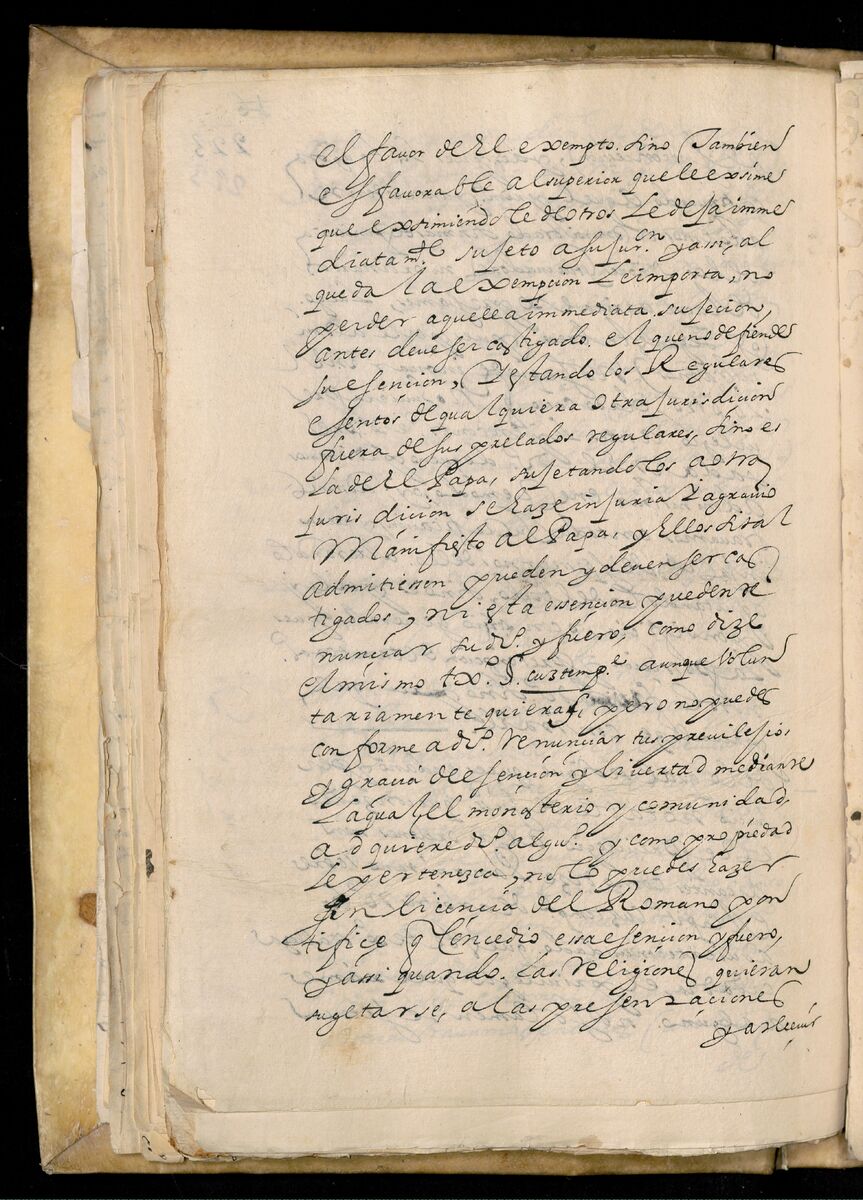 el favor de El exempto. sino Tambien
es favorable al superior que le exsime
que exsimiendo le de otros Le deja imme
diatam.te sujeto a su jur.on y assi, al
que da la exempcion Le importa, no
perder aquella immediata sujecion,
antes deve ser castigado. el que no defiende
su esencion, Y estando los Regulares
esentos de qualquiera otra jurisdicion
fuera de sus prelados regulares, sino es
La de El Papa, sujetandolos a otra
jurisdicion se haze injuria Y agravio
Manifiesto al Papa, y Ellos si tal
admitiessen pueden y deven ser cas
tigados, ni esta essencion pueden re
nunciar su dr.o y fuero, como dize
el mismo tx.o §. aunque Volun
tariamente quieras, pero no puedes
conforme a dr.o renunciar tus previlejios,
y gracia de esencion y livertad mediante
La qual el monasterio y comunidad,
adquiere dr.o algu.o y como propiedad
le pertenezca, no lo puedes hazer
sin licencia del Romano pon
tifice q Concedio essa esencion y fuero,
y assi quando. Las religiones quieran
sugetarse, a las presentaciones